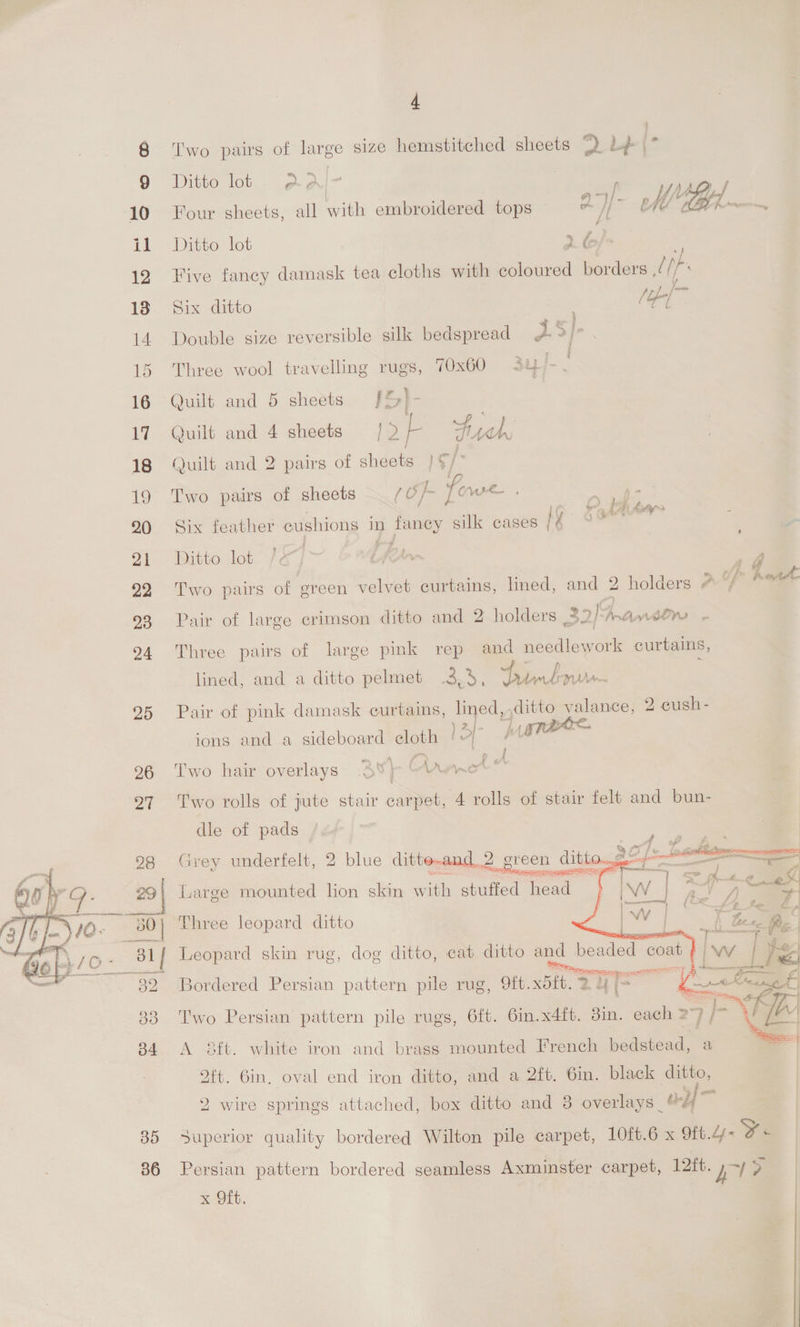 4
8 Two pairs of large size hemstitched sheets 24/-
9 Ditto lot 22/-
10 Four sheets, all with embroidered tops 27/-
11 Ditto lot 26/-
12 Five fancy damask tea cloths with coloured borders
13 Six ditto
14 Double size reversible silk bedspread 25/-
15 Three wool travelling rugs, 70x60 34/-
16 Quilt and 5 sheets 15/-
17 Quilt and 4 sheets 12/-
18 Quilt and 2 pairs of sheets
19 Two pairs of sheets 16/- Lowe
20 Six feather cushions in fancy silk cases
21 Ditto lot
22 Two pairs of green velvet curtains, lined, and 2 holders
23 Pair of large crimson ditto and 2 holders 32/-
24 Three pairs of large pink rep and needlework curtains,
lined, and a ditto pelmet
25 Pair of pink damask curtains, lined, ditto valance, 2 cush-
ions and a sideboard cloth
26 Two hair overlays
27 Two rolls of jute stair carpet, 4 rolls of stair felt and bun-
dle of pads
28 Grey underfelt, 2 blue ditto and 2 green ditto
29 Large mounted lion skin with stuffed head W
30 Three leopard ditto W
31 Leopard skin rug, dog ditto, cat ditto and beaded coat W
32 Bordered Persian pattern pile rug, 9ft.x5ft. 24/-
33 Two Persian pattern pile rugs, 6ft. 6in.x4ft. 3in. each 27/-
34 A 3ft. white iron and brass mounted French bedstead, a
2ft. 6in. oval end iron ditto, and a 2ft. 6in. black ditto,
2 wire springs attached, box ditto and 3 overlays
35 Superior quality bordered Wilton pile carpet, 10ft.6 x 9ft.
36 Persian pattern bordered seamless Axminster carpet, 12ft.
x 9ft.